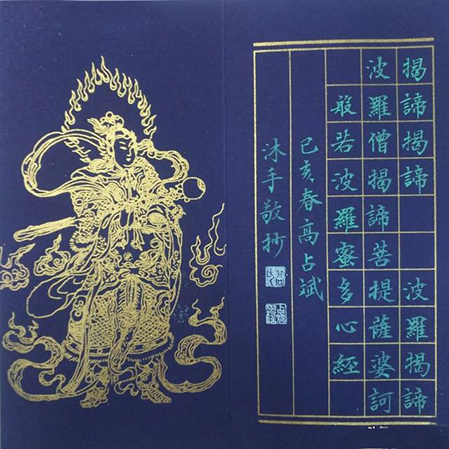 揭諦揭諦 波羅揭諦
波羅僧揭諦菩提薩婆訶
般若波羅蜜多心經
己亥春高占斌
沐手敬抄